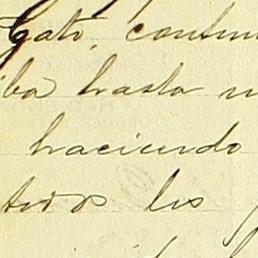 Gato, contin
iba hasta
haciendo
todos los